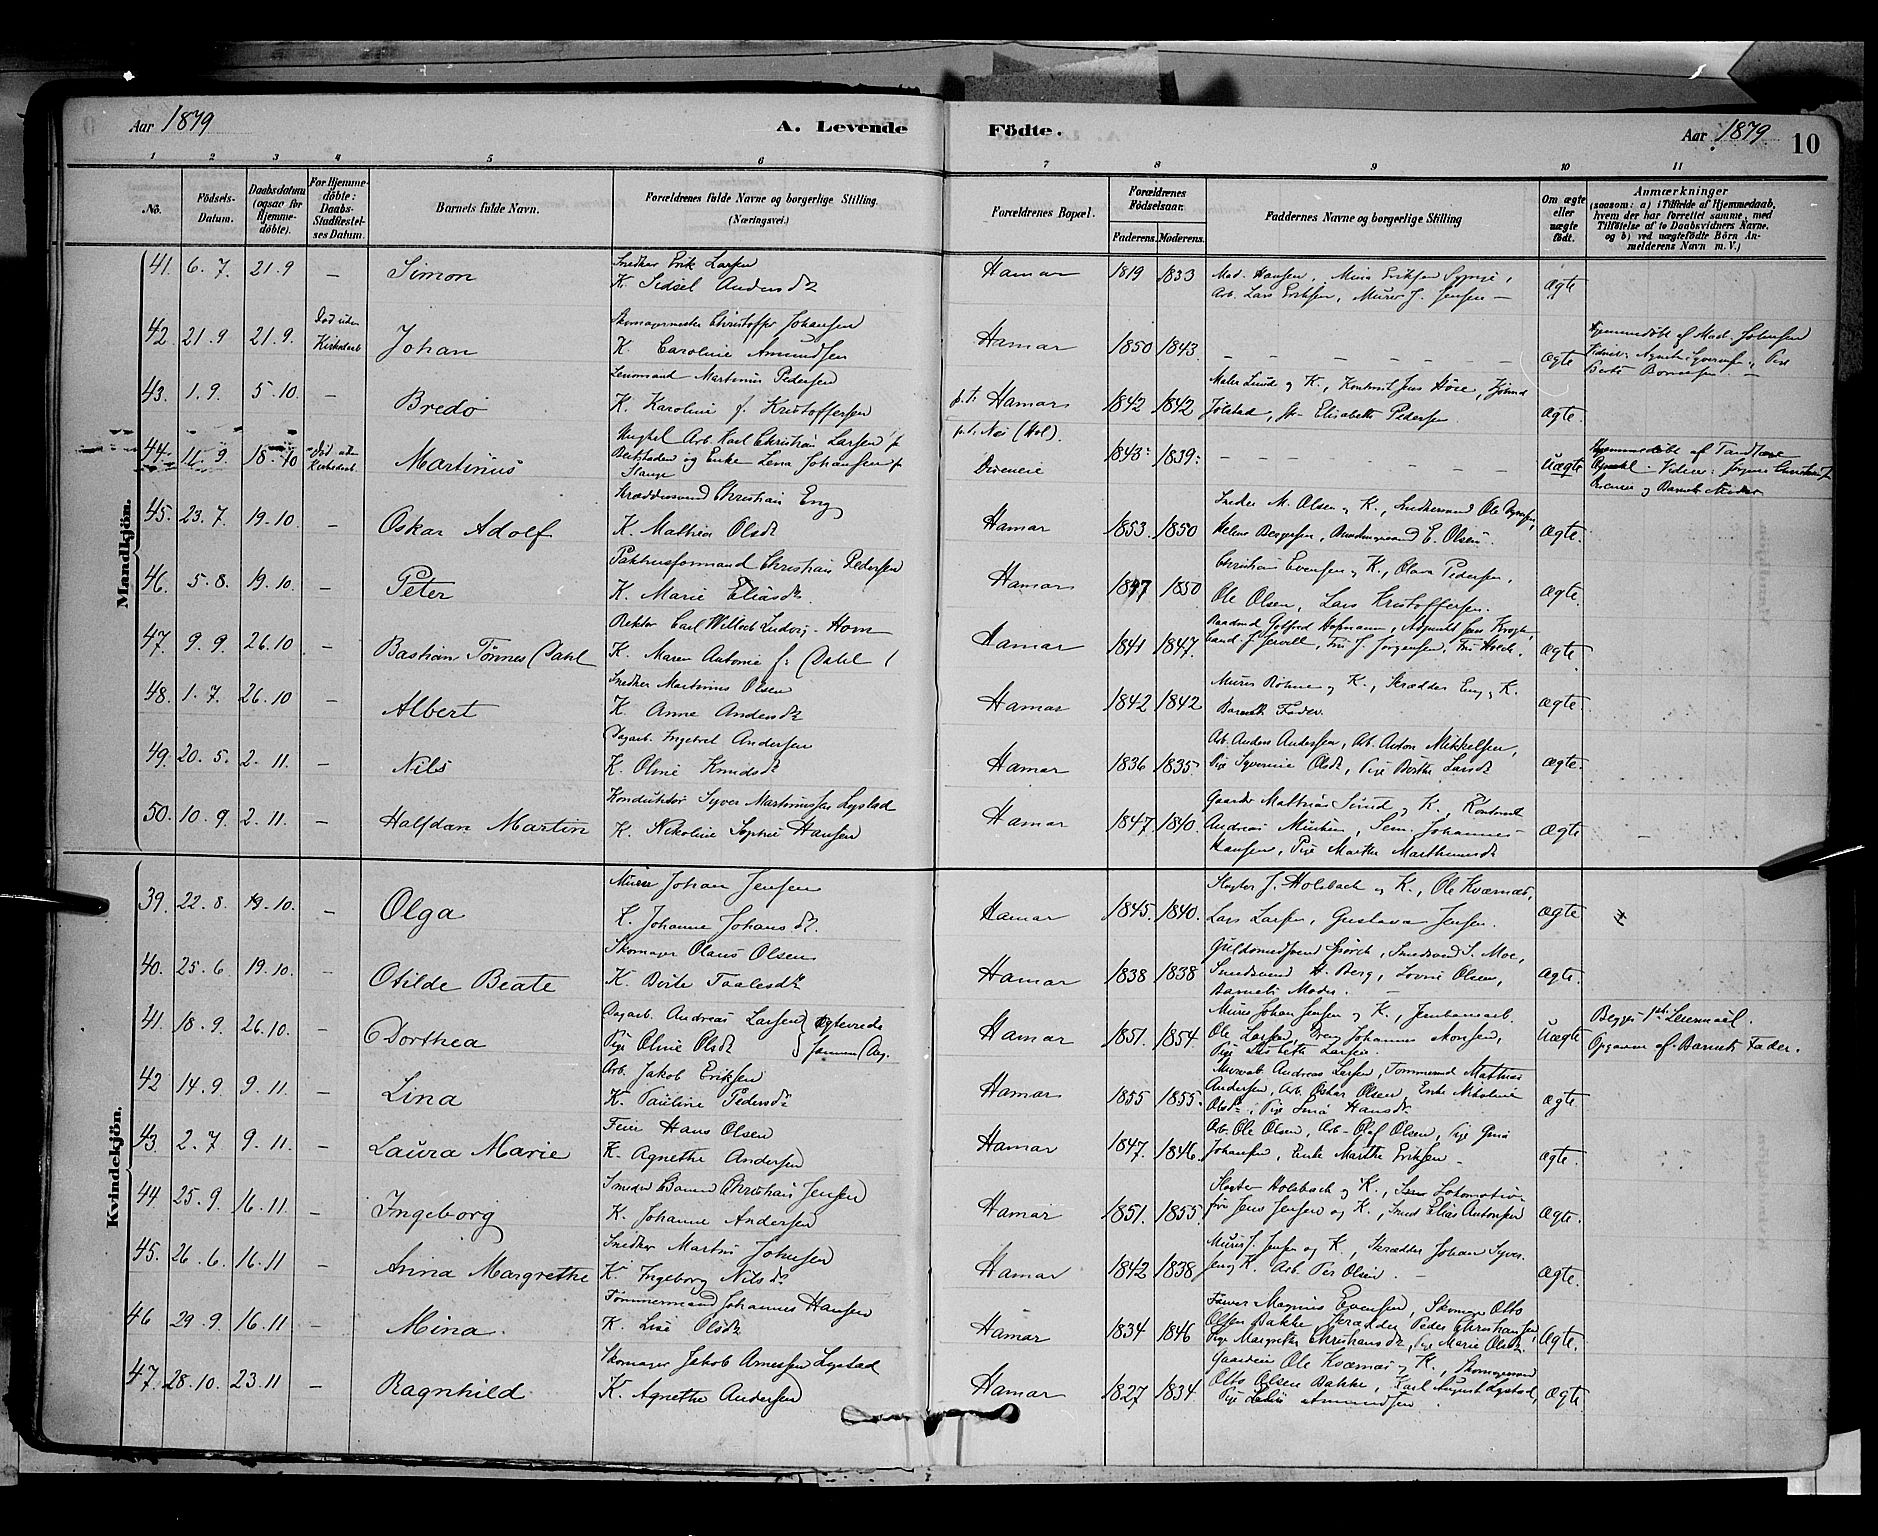 Aar 1879
A. Levende
Födte.
Aar 1879
10
1 2 3 4 5 6 7 8 9 10 11
No.
Födsels-Datum.
Daabsdatum (ogsaa for Hjemme-döbte).
For Hjemme-döbte: Daabs-Stadfæstel-ses Datum.
Barnets fulde Navn.
Forældrenes fulde Navne og borgerlige Stilling (Næringsvei.)
Forældrenes Bopæl.
Forældrenes Födselsaar.
Faderens. Moderens.
Faddernes Navne og borgerlige Stilling
Om ægte eller uægte födt.
Anmærkninger
(saasom: a) i Tilfælde af Hjemmedaab,
hvem der har forrettet samme, med
Tilföielse af to Daabsvidners Navne,
og b) ved uægtefödte Börn An-
melderens Navn m. V.)
Mandkjön.
41. 6. 7. 21. 9 – Simon
Snedker Erik Larsen
K. Sidsel Andersdt
Hamar 1819 1833
Mad. Hansen, Mina Eriksen
Arb. Lars Eriksen, Murer J. Jensen –
Ægte
42. 21. 9 21. 9. Död uden Kirkedaab Johan
Skomagermester Christoffer Johansen
K. Caroline Amundsen
Hamar 1850 1843. – – – – – – – ægte
Hjemmedöbt af Mad. Johansen
43. 1. 9. 5. 10. – Bredo
Martinus Pedersen
K. Karoline f. Kristoffersen
p.t. Hamar 1842 1842
Maler Lund og K., Kontorist Jens Höie,
Jölstad, Elisabeth Pedersen
Ægte.
44. 11. 9 18. 10 Död uden Kirkedaab Martinus
Ungkel Arb. Karl Christian Larsen
og Enke Lena Johansen
Stange
p.t. Næs (Hol.)
1843 1839 – – – – – – Uægte
Hjemmedöbt af
og Barnets Moder
45. 23. 7. 19. 10. – Oskar Adolf
Skræddersvend Christian Eng
K. Mathea Olsdt
Hamar 1853. 1850
Snedker M. Olsen og K., Snedkersvend Ole
Helene Bergersen, E. Olsen.
Ægte.
46. 5. 8. 19. 10. – Peter
Pakhusformand Christian Pedersen
K. Marie Eliasdt.
Hamar 1847 1850
Christian Evensen og K., Olava Pedersen,
Ole Olsen, Lars Kristoffersen.
Ægte.
47. 9. 9. 26. 10 – Bastian Tönnes Dahl
Rektor Carl Ludvig Horn
K. Maren Antonie f. Dahl
Hamar 1841 1847.
Gotfred Hofmann, Adjunkt Jens Krogh,
Fru J. Jörgensen, Fru
ægte.
48. 1. 7. 26. 10 – Albert
Snedker Martinus Olsen
K. Anne Andersdt
Hamar 1842 1842
Murer Böhme og K., Skrædder Eng og K.
Barnets Fader.
ægte.
49. 20. 5. 2. 11. – Nils
Dagarb. Ingebret Andersen
K. Oline Knudsdt
Hamar 1836 1835
Arb. Anders Andersen, Arb. Anton Mikkelsen,
Pige Syverine Olsdt, Pige Berthe Larsdt
ægte.
50. 10. 9. 2. 11. – Halfdan Martin
Konduktör Syver Martinussen Lystad
K. Nikoline Sophie Hansen
Hamar 1847. 1840.
Gaardbr. Mathias Smed og K., Kontorist
Andreas, Sem. Johannes
Hansen, Pige Marthe
Ægte –
Kvindekjön.
39. 22. 8. 19. 10. – Olga
Murer Johan Jensen
K. Johanne Johansdt.
Hamar 1845. 1840.
Slagter J. Holsbach og K., Ole Kværnæs,
Lars Larsen, Gustava Jensen.
ægte
40. 25. 6 19. 10. – Otilde Beate
Skomager Olaus Olsen
K. Berte Taalesdt
Hamar 1838 1838
Guldsmedsvend Spörck, Smedsvend S. Moe,
Smedsvend H. Berg, Lovise Olsen,
Barnets Moder. –
ægte.
41. 18. 9. 26. 10. – Dorthea
Dagarb. Andreas Larsen
Pige Oline Olsdt
ægteviede samme Dag.
Hamar 1851. 1854.
Murer Johan Jensen og K., Jernbanearb.
Ole Larsen, Dreng Johannes Aronsen,
Pige Lisbeth Larsen.
Uægte
Begges 1ste Leiermaal.
Opgaven af Barnets Fader.
42 14. 9 9. 11. – Lina
Arb. Jakob Eriksen
K. Pauline Pedersdt
Hamar 1855 1855.
Andreas Larsen, Tömmermd Mathias
Andersen, Arb. Oskar Olsen, Enke Nikoline
Olsdt, Pige Hansdt.
ægte
43. 2. 7 9. 11. – Laura Marie
Feier Hans Olsen
K. Agnethe Andersen
Hamar 1847. 1846.
Arb. Ole Olsen, Arb. Olaf Olsen, Pige Gina
Johansen, Enke Marthe Eriksen –
ægte.
44 25. 9. 16. 11. – Ingeborg
Smeder Christian Jensen
K. Johanne Andersen
Hamar 1851. 1855.
Slagter Holsbach og K., Lokomotiv-
förer Jens Jensen og K., Smed Elias Antonsen
Ægte.
45. 26. 6. 16. 11 – Anna Margrethe
Snedker Martin Johnsen
K. Ingeborg Nilsdt
Hamar 1842 1838
Murer J. Jensen og K., Skrædder Johan Syver-
sen og K. Arb. Per Olsen. –
Ægte.
46 29. 9. 16. 11 – Mina.
Tömmermand Johannes Hansen
K. Lise Olsdt
Hamar 1834 1846
Farver Magnus Evensen, Skomager Otto
Olsen Bakke, Skrædder Peder Christiansen,
Pige Margrethe Christiansdt, Pige Marie Olsdt.
Ægte.
47. 28. 10. 23. 11 – Ragnhild
Skomager Jakob Arnesen Lystad
K. Agnethe Andersen
Hamar 1827 1834
Gaardeier Ole Kværnæs og K., Skomagersvend
Otto Olsen Bakke, Karl August Lystad,
Pige Lovise Amundsen.
Ægte